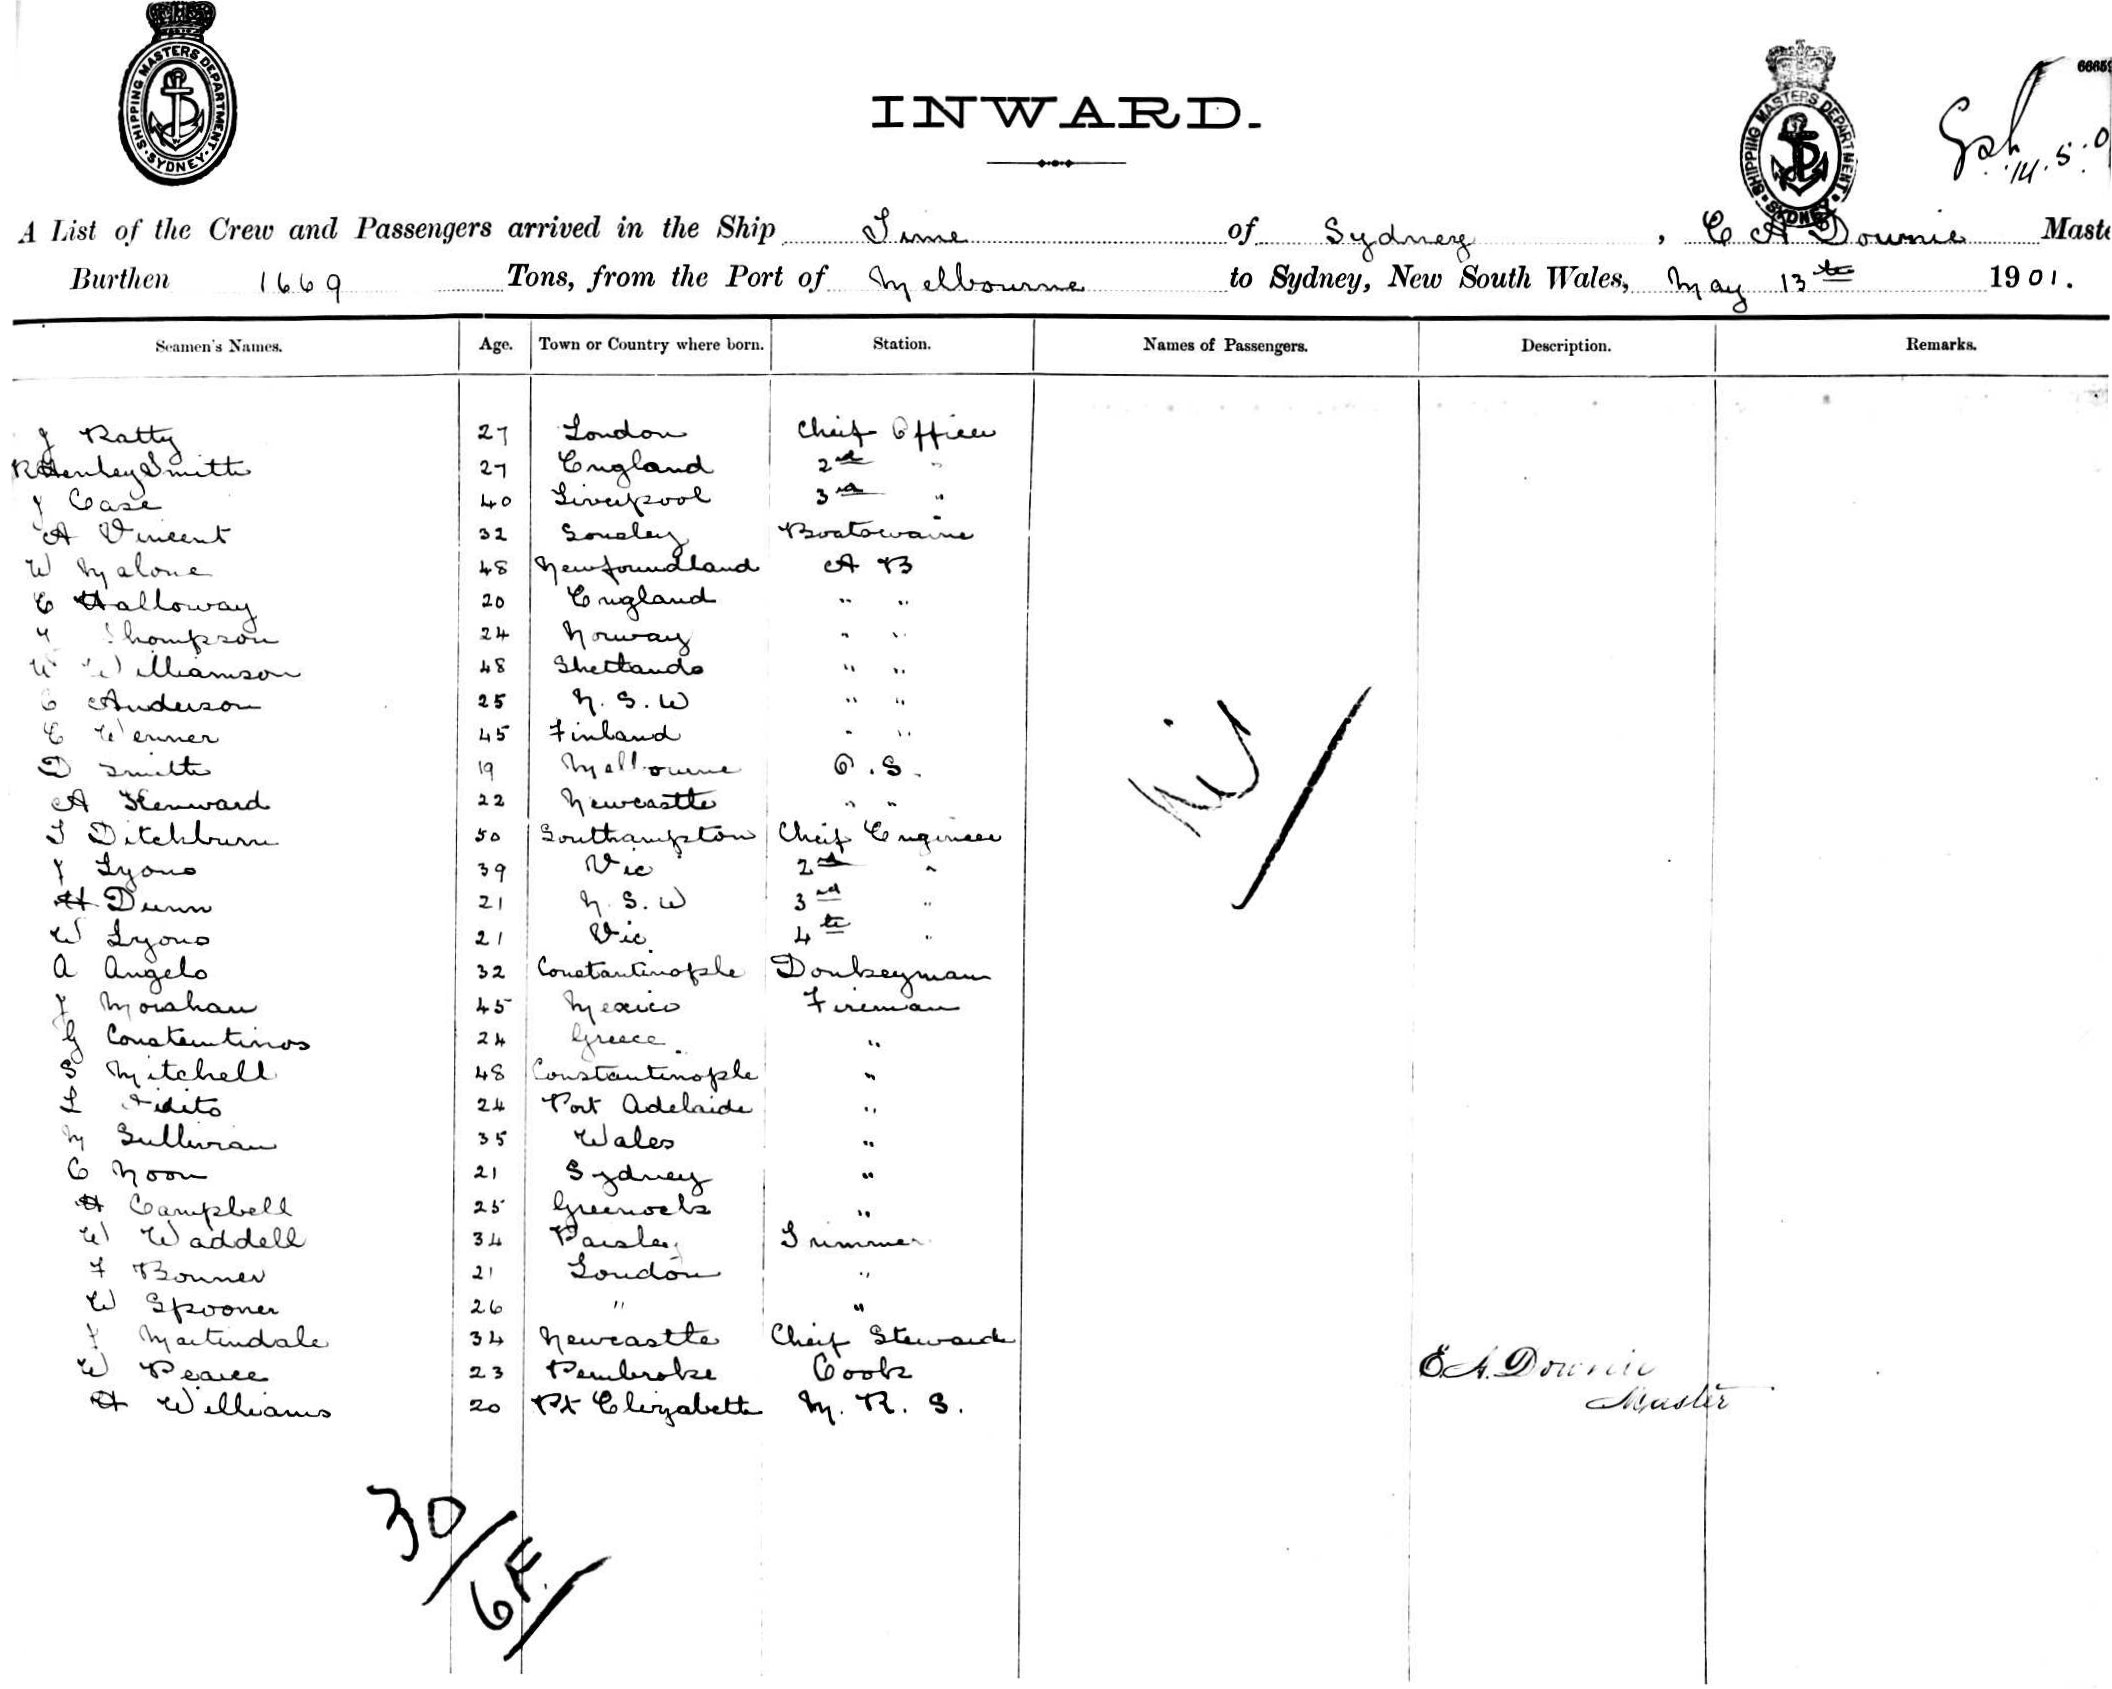 SHIPPING MASTERS DEPARTMENT. SYDNEY.
INWARD.
SHIPPING MASTERS DEPARTMENT. SYDNEY
14.5.0
A List of the Crew and Passengers arrived in the Ship Time of Sydney, E A Downie
Burthen 1669 Tons, from the Port of Melbourne to Sydney, New South Wales, May 13th 1901.
Seamen's Names. Age. Town or Country where born. Station. Names of Passengers. Description. Remarks.
J Ratty 27 London Cheif Officer
R Henley Smith 27 England 2nd "
J Case 40 Liverpool 3rd "
A Vincent 32 Boatswaine
W Malone 48 Newfoundland A B
E Halloway 20 England " "
Thompson 24 Norway " "
W Williamson 48 Shetlands " "
C Anderson 25 N. S. W " "
E Wenner 45 Finland " "
D Smith 19 Melbourne O. S.
A Kenward 22 Newcastle " "
T Ditchburn 50 Southampton Cheif Engineer
J Lyons 39 Vic 2nd "
H Dunn 21 N. S. W 3rd "
W Lyons 21 Vic 4th "
A Angelo 32 Constantinople Donkeyman
J Morahan 45 Mexico Fireman
G Constantinos 24 Greece "
S Mitchell 48 Constantinople "
L 24 Port Adelaide "
M Sullivan 35 Wales "
C Noon 21 Sydney "
H Campbell 25 Greenock "
W Waddell 34 Paisley Trimmer
F Bonner 21 London "
W Spooner 26 " "
J Martindale 34 Newcastle Cheif Steward
W Pearce 23 Pembroke Cook
H Williams 20 Pt Elizabeth M. R. S.
Nil
E. A. Downie
Master
30/
6F/